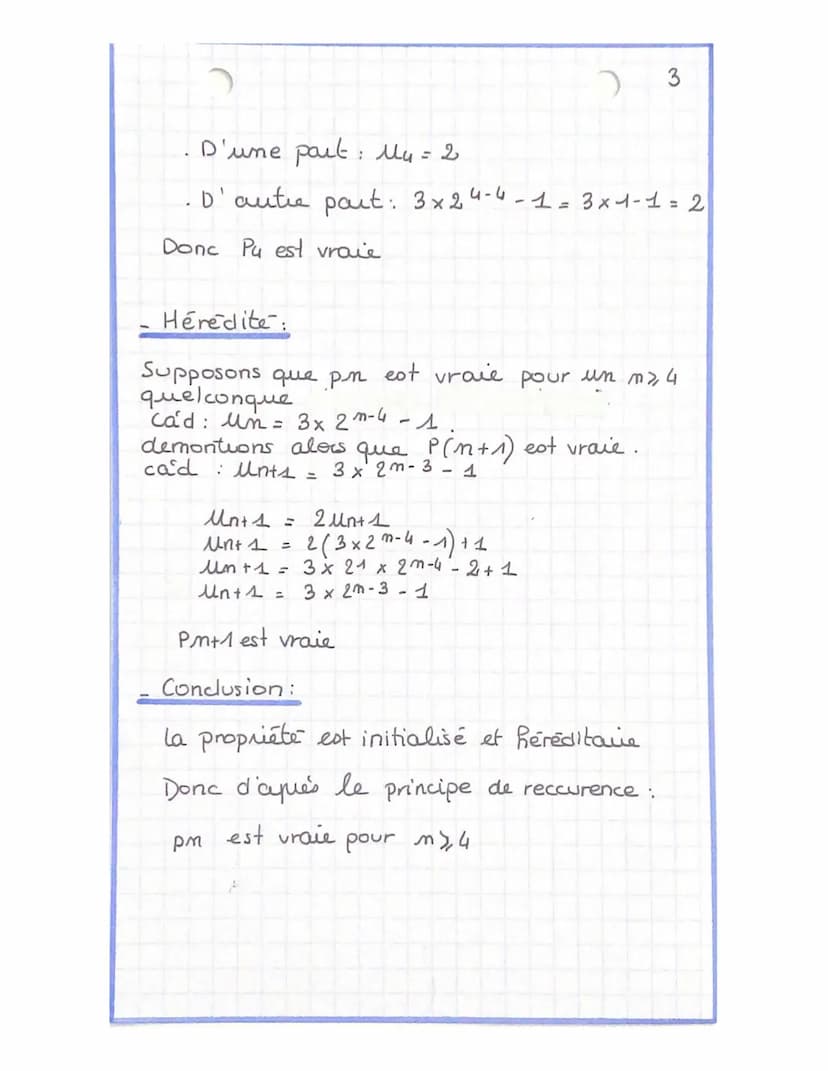 3
. D'une part : U4 = 2
. D'autre part : 3 × 2^4-4 - 1 = 3 × 1 - 1 = 2
Donc P4 est vraie
- Hérédité :
Supposons que pn est vraie pour un n ≥ 4
quelconque
cà'd : Un = 3 × 2^n-4 - 1.
demontrons alors que P(n+1) est vraie.
cà'd : Un+1 = 3 × 2^n-3 - 1
Un+1 = 2Un+1
Un+1 = 2(3 × 2^n-4 - 1) + 1
Un+1 = 3 × 2^1 × 2^n-4 - 2 + 1
Un+1 = 3 × 2^n-3 - 1
Pn+1 est vraie
- Conclusion :
la propriété est initialisé et héréditaire
Donc d'après le principe de reccurence :
pn est vraie pour n ≥ 4